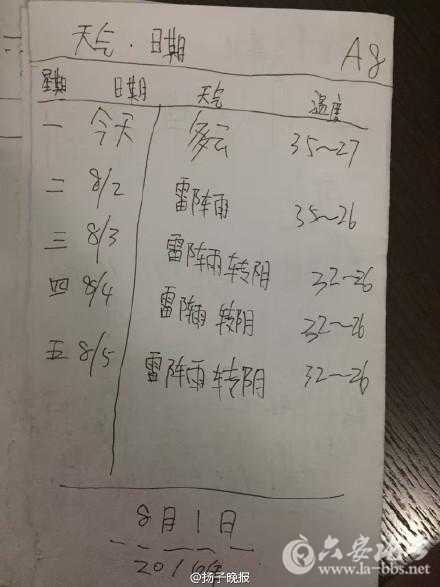 天气·日期
A8
星期 日期 天气 温度
一 今天 多云 35~27
二 8/2 雷阵雨 35~26
三 8/3 雷阵雨转阴 32~26
四 8/4 雷阵雨转阴 32~26
五 8/5 雷阵雨转阴 32~26
8月1日
@扬子晚报
六安论坛
www.la-bbs.net